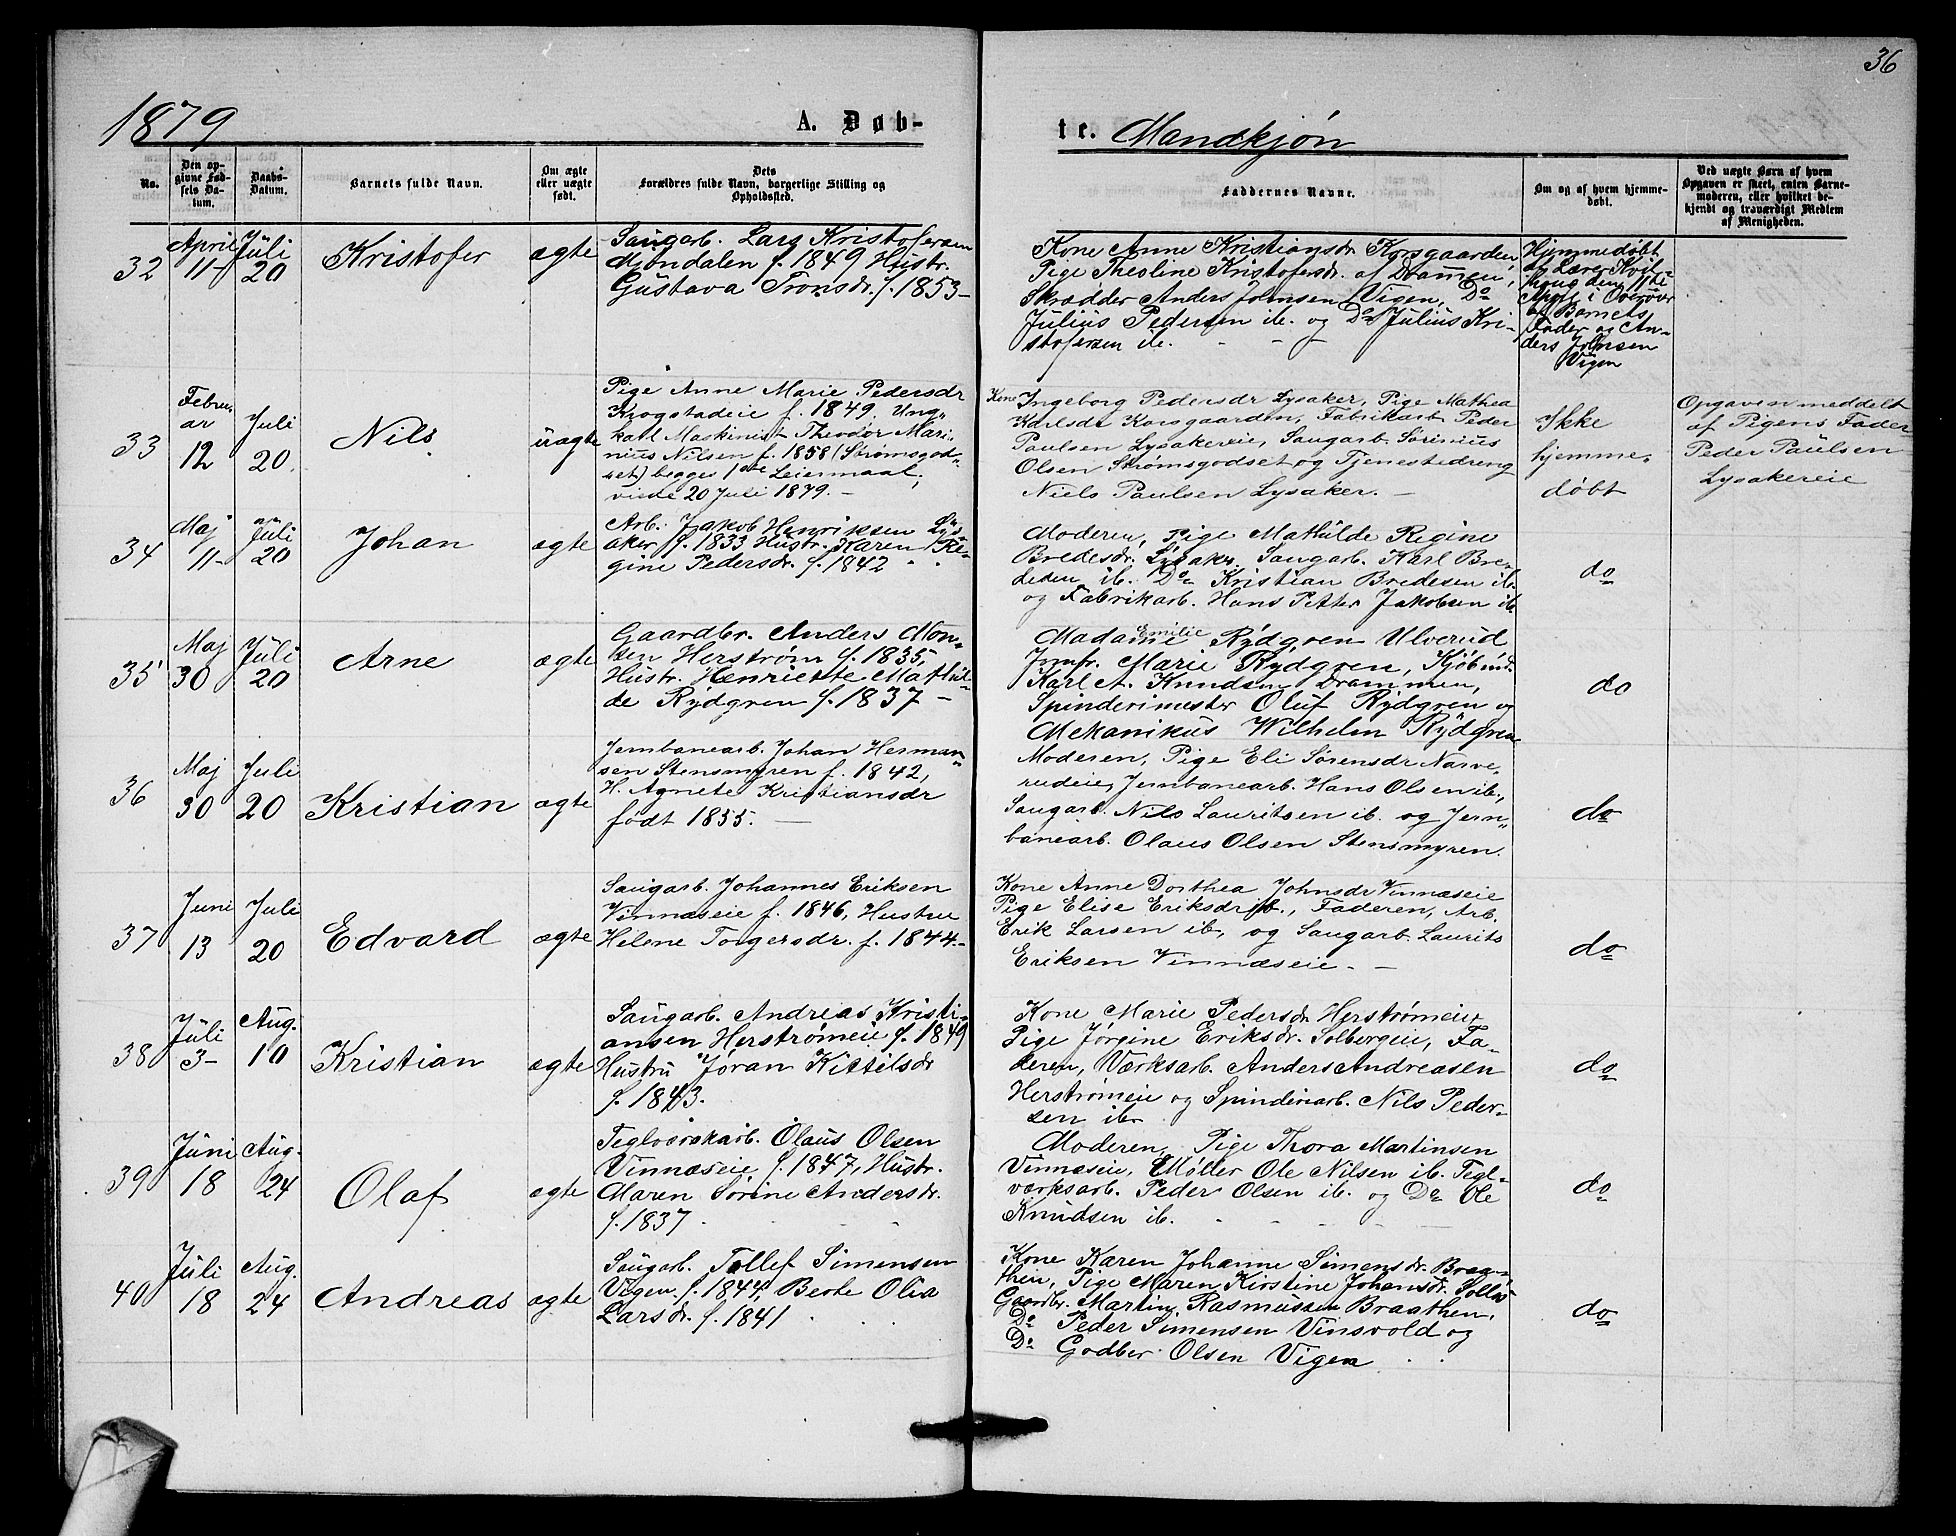 36
1879
A. Døb-
te. Mandkjøn
No.
Den op-
givne Fød-
sels Da-
tum.
Daabs-
Datum.
Barnets fulde Navn.
Om ægte
eller uægte
født.
Dets
Forældres fulde Navn, borgerlige Stilling og
Opholdssted.
Faddernes Navne.
Om og af hvem hjemme-
døbt.
Ved uægte Børn af hvem
Opgaven er skeet, enten Barne-
moderen, eller hvilket be-
kjendt og troværdigt Medlem
af Menigheden.
32
April
11-
Juli
20
Kristofer
ægte
Saugarb. Lars Kristofersen
Mondalen f. 1849 Hustr.
Gustava Tronsdr. f. 1853-
Kone Anne Kristiansdr Korsgaarden,
Pige Theoline Kristofersdr. af Drammen,
Skrædder Anders Johnsen Vigen, Do
Julius Pedersen ib. og Do Julius Kri-
stofersen ib. - -
Hjemmedøbt
af Lærer Kvil-
haug den 11te
April i Overvær
af Barnets
Fader og An-
ders Johnsen
Vigen
33
Febru-
ar
12
Juli
20
Nils
uægte
Pige Anne Marie Pedersdr
Krogstadeie f. 1849. Ung-
karl Maskinist Theodor Mari-
nius Nilsen f. 1858 (Strømsgod-
set) begges 1ste Leiermaal,
viede 20 Juli 1879. -
Kone Ingeborg Pedersdr Lysaker, Pige Mathea
Karlsdr Korsgaarden, Fabrikarb. Peder
Paulsen Lysakereie, Saugarb. Sørinius
Olsen Strømsgodset og Tjenestedreng
Niels Paulsen Lysaker. -
Ikke
hjemme-
døbt
Opgaven meddelt
af Pigens Fader
Peder Paulsen
Lysakereie
34
Maj
11-
Juli
20
Johan
ægte
Arb. Jakob Henriksen Lys-
aker f. 1833 Hustr. Karen Re-
gine Pedersdr. f. 1842
Moderen, Pige Mathilde Regine
Bredesdr. Lysaker, Saugarb. Karl Bre-
desen ib. Do Kristian Bredesen ib.
og Fabrikarb. Hans Petter Jakobsen ib.
do
35
Maj
30
Juli
20
Arne
ægte
Gaardbr. Anders Mon-
sen Herstrøm f. 1835,
Hustr. Henriette Mathil-
de Rydgren f. 1837 -
Madame Emilie Rydgren Ulverud
Jomfr. Marie Rydgren, Kjøbmd.
Karl A. Knudsen Drammen,
Spinderimester Oluf Rydgren og
Mekanikus Wilhelm Rydgren
do
36
Maj
30
Juli
20
Kristian
ægte
Jernbanearb. Johan Herman-
sen Stensmyren f. 1842,
H. Agnete Kristiansdr
født 1855. -
Moderen, Pige Eli Sørensdr Narve-
rudeie, Jernbanearb. Hans Olsen ib.,
Saugarb. Nils Lauritsen ib. og Jern-
banearb. Olaus Olsen Stensmyren.
do
37
Juni
13
Juli
20
Edvard
ægte
Saugarb. Johannes Eriksen
Vinnæseie f. 1846, Hustru
Helene Torgersdr. f. 1844-
Kone Anne Dorthea Johnsdr Vinnæseie
Pige Elise Eriksdr ib., Faderen, Arb.
Erik Larsen ib, og Saugarb. Laurits
Eriksen Vinnæseie. -
do
38
Juli
3-
Aug.
10
Kristian
ægte
Saugarb. Andreas Kristi-
ansen Herstrømeie f. 1849
Hustru Jøran Kittilsdr
f. 1843.
Kone Marie Pedersdr Herstrømeie,
Pige Jørgine Eriksdr. Solbergeie, Fa-
deren, Værksarb. Anders Andreasen
Herstrømeie og Spinderiarb. Nils Peder-
sen ib.
do
39
Juni
18
Aug.
24
Olaf
ægte
Teglværksarb. Olaus Olsen
Vinnæseie f. 1847, Hustr.
Maren Sørine Andersdr.
f. 1837
Moderen, Pige Thora Martinsen
Vinnæseie, Møller Ole Nilsen ib. Tegl-
værksarb. Peder Olsen ib. og Do Ole
Knudsen ib.
do
40
Juli
18
Aug.
24
Andreas
ægte
Saugarb. Tollef Simensen
Vigen f. 1844, Berte Olia
Larsdr. f. 1841
Kone Karen Johanne Simensdr. Braa-
then, Pige Maren Kirstine Johansdr.
Gaardbr. Martin Rasmussen Braathen,
Do Peder Simensen Vinsvold og
Do Godber Olsen Vigen
do